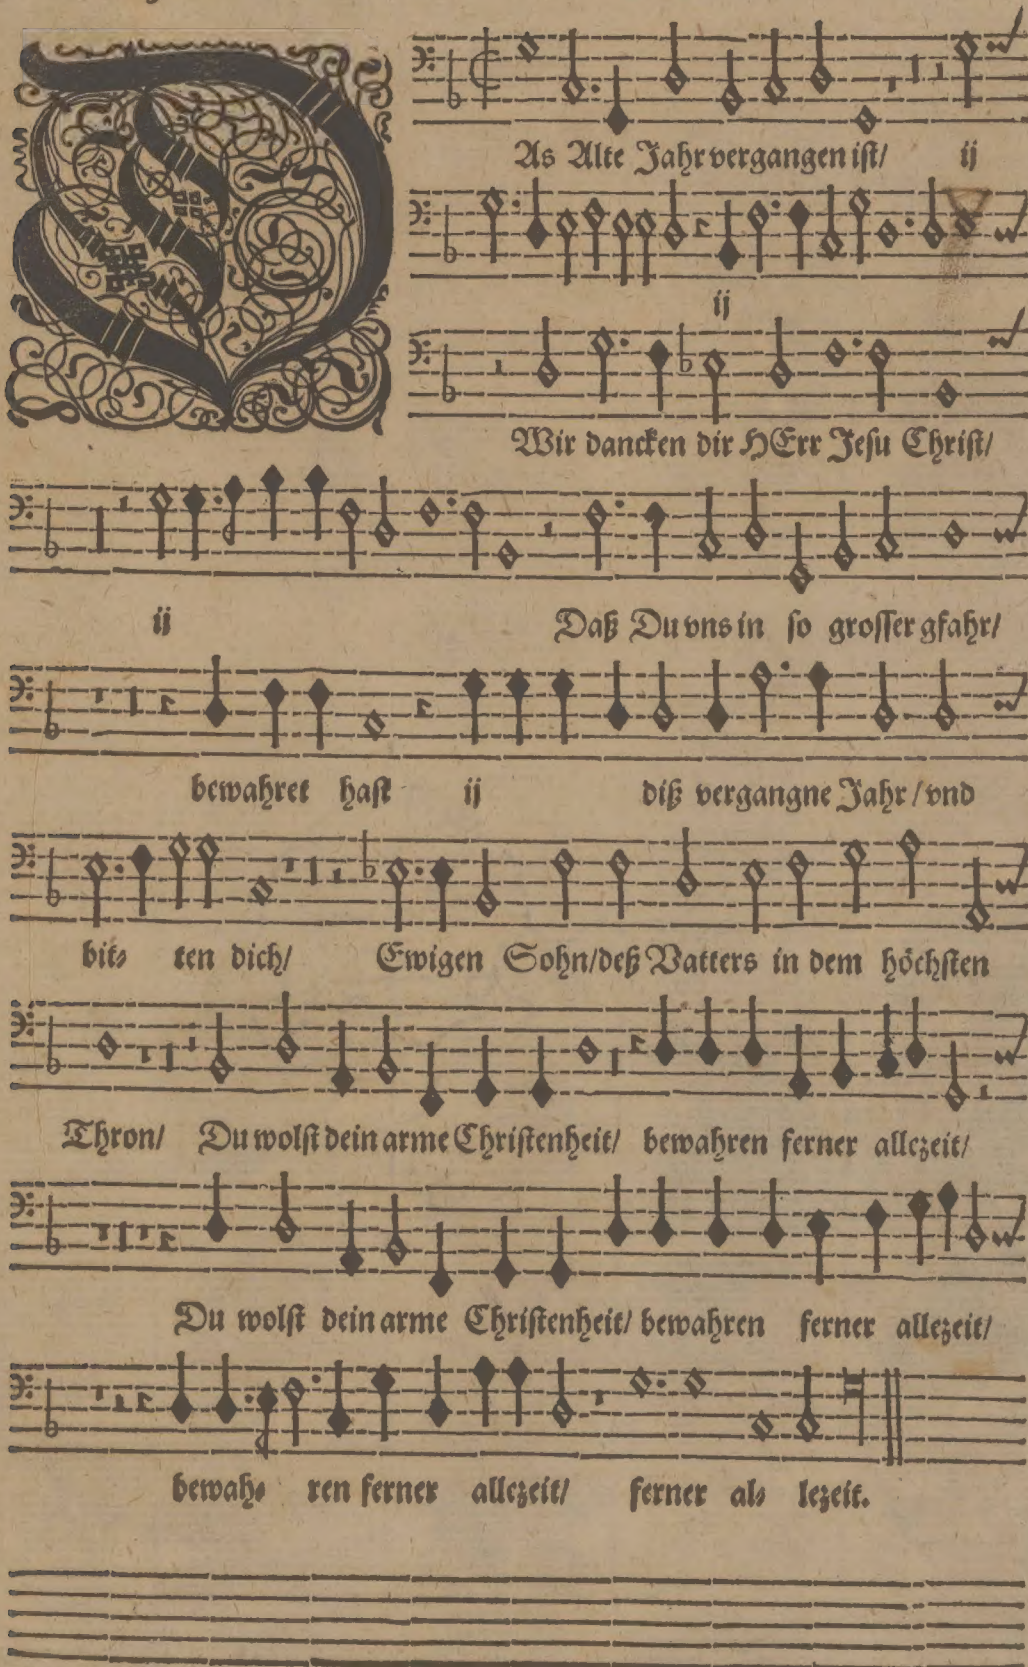 DAs Alte Jahr vergangen ist/ ij
ij
Wir dancken dir HErr Jesu Christ/
ij Daß Du vns in so grosser gfahr/
bewahret hast ij diß vergangne Jahr/vnd
bit- ten dich/ Ewigen Sohn/deß Vatters in dem höchsten
Thron/ Du wolst dein arme Christenheit/ bewahren ferner allezeit/
Du wolst dein arme Christenheit/ bewahren ferner allezeit/
bewah- ren ferner allezeit/ ferner al- lezeit.